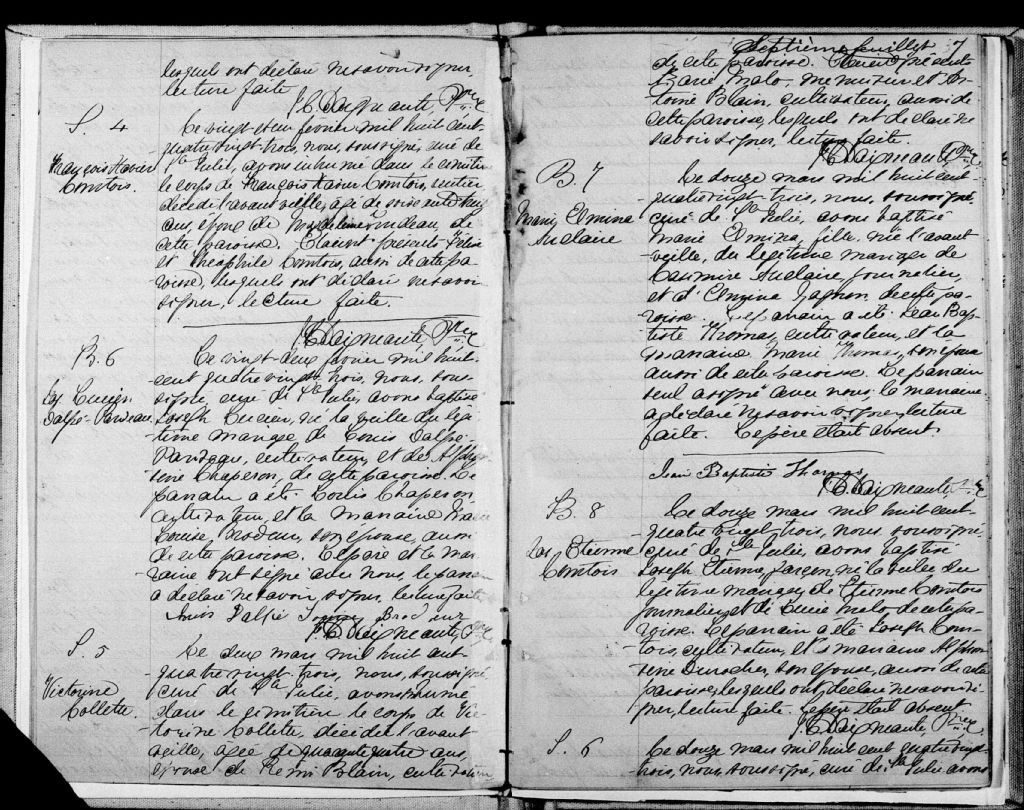 lesquels ont déclaré ne savoir signer,
lecture faite.
Daigneault, Ptre
S. 4
François Xavier
Comtois.
Le vingt et un février mil huit cent
quatre vingt-trois, nous, soussigné, curé de
Ste Julie, avons inhumé dans le cimetière
le corps de François Xavier Comtois, rentier
décédé l'avant veille, agé de soixante et huit
ans, époux de Magdeleine Brudeau, de
cette paroisse. Etaient présents
et Théophile Comtois, aussi de cette pa-
roisse, lesquels ont déclaré ne savoir
signer, lecture faite.
Daigneault, Ptre
B. 6
Jos Lucien
Dalpé-Pariseau
Le vingt-deux février mil huit-
cent quatre vingt trois, nous, sous-
signé, curé de Ste Julie, avons baptisé
Joseph Lucien, né la veille du légi-
time mariage de Louis Dalpé-
Pariseau, cultivateur, et de
Chaperon, de cette paroisse. Le
parrain a été Louis Chaperon,
cultivateur, et la marraine
Louise Brodeur, son épouse, aussi
de cette paroisse. Le père et la mar-
raine ont signé avec nous, le parrain
a déclaré ne savoir signer, lecture faite
Louis Dalpé Brodeur
Daigneault, Ptre
S. 5
Victorine
Collette.
Le deux mars mil huit cent-
quatre vingt-trois, nous, soussigné
curé de Ste Julie, avons inhumé
dans le cimetière le corps de Vic-
torine Collette, décédée l'avant
veille, agée de quarante quatre ans,
épouse de Rémi Blain, cultivateur
Septième feuillet 7
de cette paroisse. Etaient présents
Malo, menuisier et An-
toine Blain, cultivateur, aussi de
cette paroisse, lesquels ont déclaré ne
savoir signer, lecture faite.
Daigneault, Ptre
B. 7
Marie Elmina
Auclaire
Le douze mars mil huit cent-
quatre vingt trois, nous, soussigné,
curé de Ste Julie, avons baptisé
Marie Elmina, fille, née l'avant
veille, du légitime mariage de
Casimire Auclaire, journalier,
et d'Elmina Gagnon, de cette pa-
roisse. Le parrain a été Jean Bap-
tiste Thomas, cultivateur, et la
marraine Marie Thomas, son épouse
aussi de cette paroisse. Le parrain
seul a signé avec nous, la marraine
a déclaré ne savoir signer, lecture
faite. Le père était absent.
Jean Baptiste Thomas
Daigneault, Ptre
B. 8
Jos. Etienne
Comtois
Le douze mars mil huit cent-
quatre vingt, trois, nous soussigné,
curé de Ste Julie, avons baptisé
Joseph Etienne, garçon, né la veille du
légitime mariage de Etienne Comtois
journalier, et de Lucie Malo, de cette pa-
roisse. Le parrain a été Joseph Com-
tois, cultivateur, et la marraine Alphon-
sine Durocher, son épouse, aussi de cette
paroisse, lesquels ont déclaré ne savoir si-
gner, lecture faite. Le père était absent
Daigneault, Ptre
S. 6
Le douze mars mil huit cent quatre vingt
trois, nous, soussigné, curé de Ste Julie avons